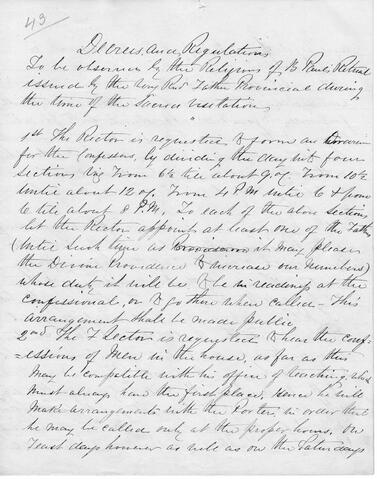 43
Decrees and Regulations
To be observed by the Religious of St Paul's Retreat
issued by the Very Revd Father Provincial during
the time of the Sacred Visitation
1st The Rector is requested to form an
for the Confessors, by dividing the day into four
sections viz From 6½ till about 9 o'c. From 10½
until about 12 o'c. From 4 P.M. until 6 & from
6 till about 8 P.M. To each of the above Sections
let the Rector appoint at least one of the Fathers
(Until such time as it may please
the Divine Providence to increase our Numbers)
whose duty it will be to be in readiness at the
confessional, or to go there when called - This
arrangement shall be made public
2nd The F Lector is requested to hear the conf-
=essions of Men in the house, as far as this
May be compatible with his office of teaching, which
Must always have the first place. Hence he will
Make arrangements with the Porter, in order that
he may be called only at the proper hours. On
Feast days however as well as on the Saturdays